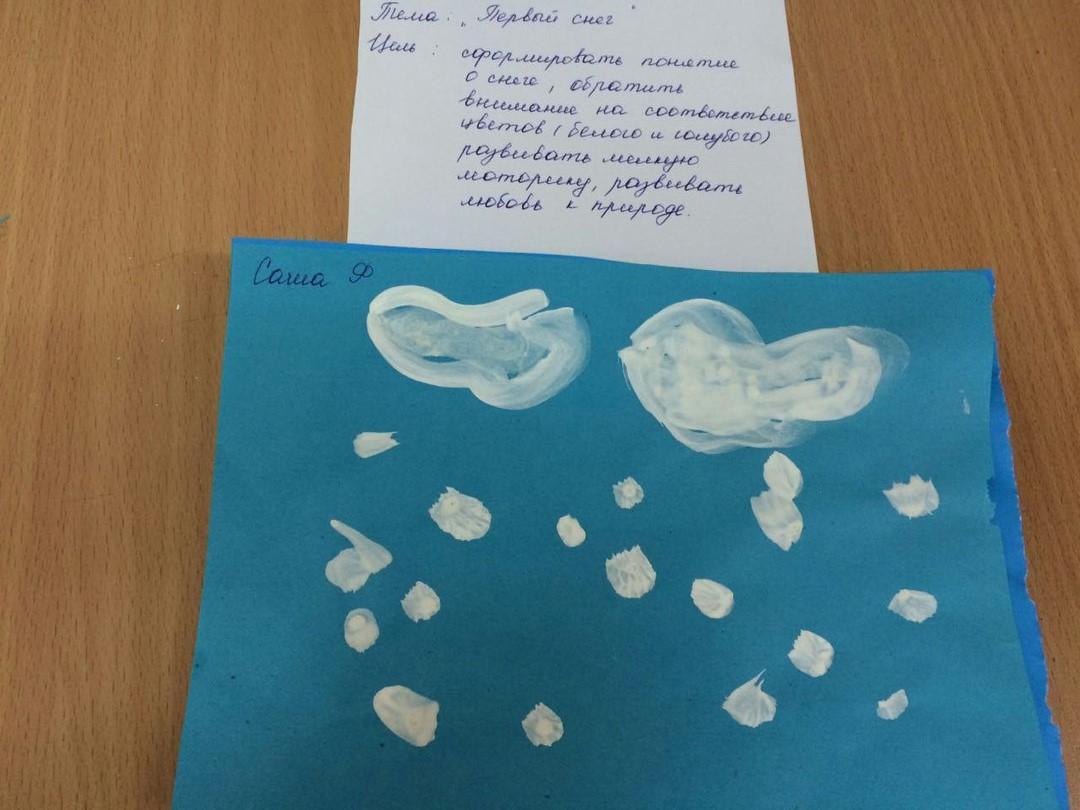 Тема: „Первый снег"
Цель: сформировать понятие
о снеге, обратить
внимание на соответствие
цветов (белого и голубого)
развивать мелкую
моторику, развивать
любовь к природе.
Саша Ф